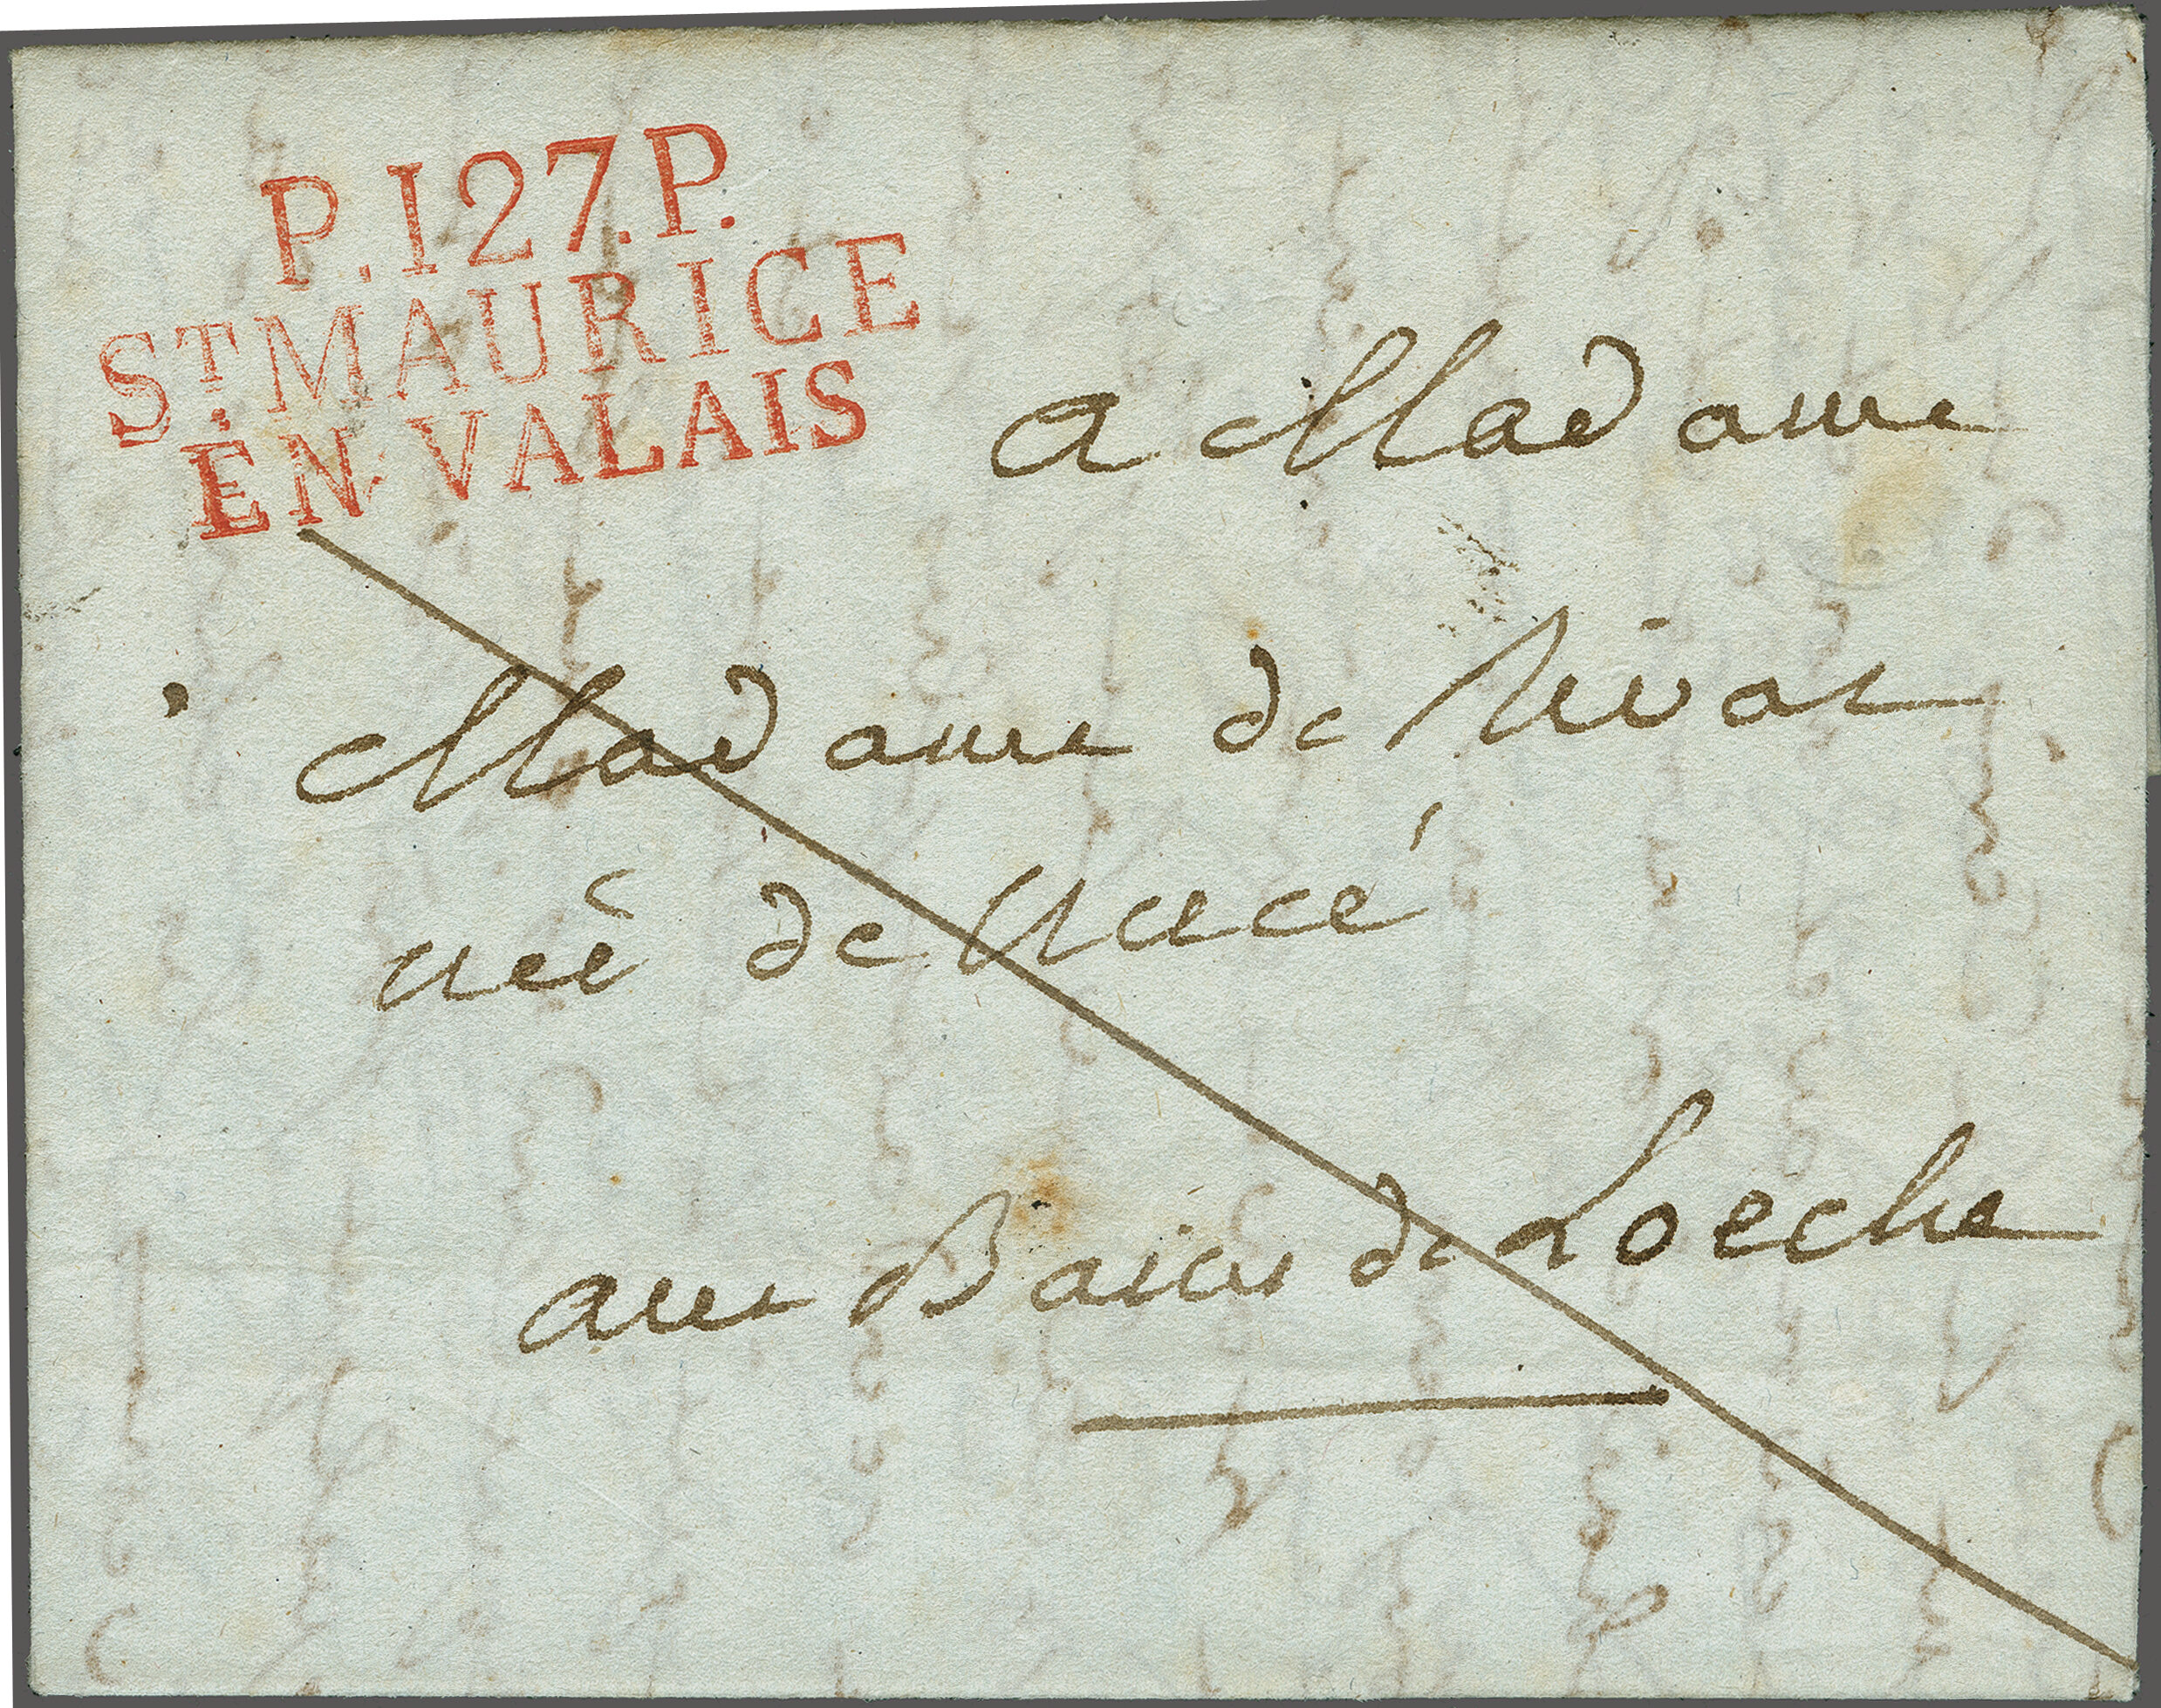 P.127.P.
ST MAURICE
EN VALAIS
a Madame
Madame de Rivaz
neé de Nucé
aux Bains de Loeche